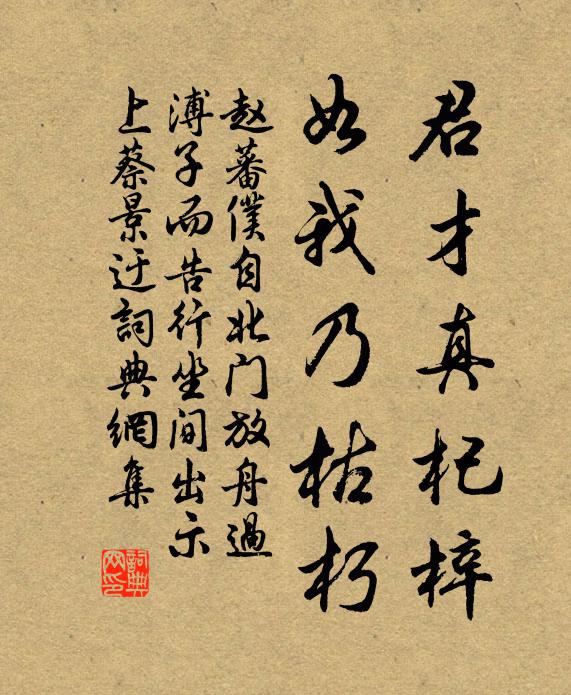 君才真杞梓
如我乃枯朽
赵蕃僕自北门放舟過
溥子而告行坐间出示
上蔡景迂詞典網集
詞典網印